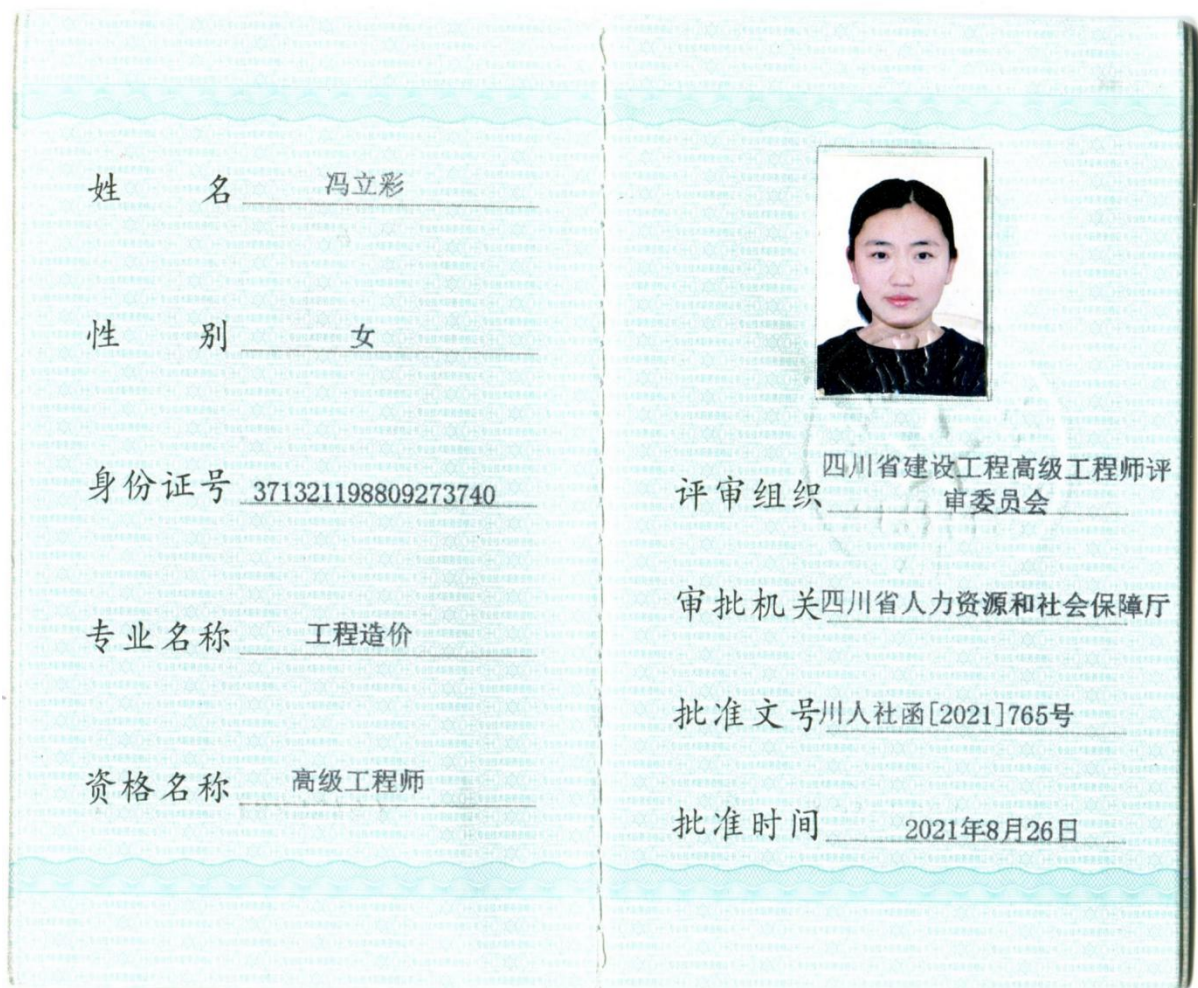 姓名 冯立彩
性别 女
身份证号 371321198809273740
专业名称 工程造价
资格名称 高级工程师
评审组织 四川省建设工程高级工程师评
审委员会
审批机关 四川省人力资源和社会保障厅
批准文号 川人社函[2021]765号
批准时间 2021年8月26日